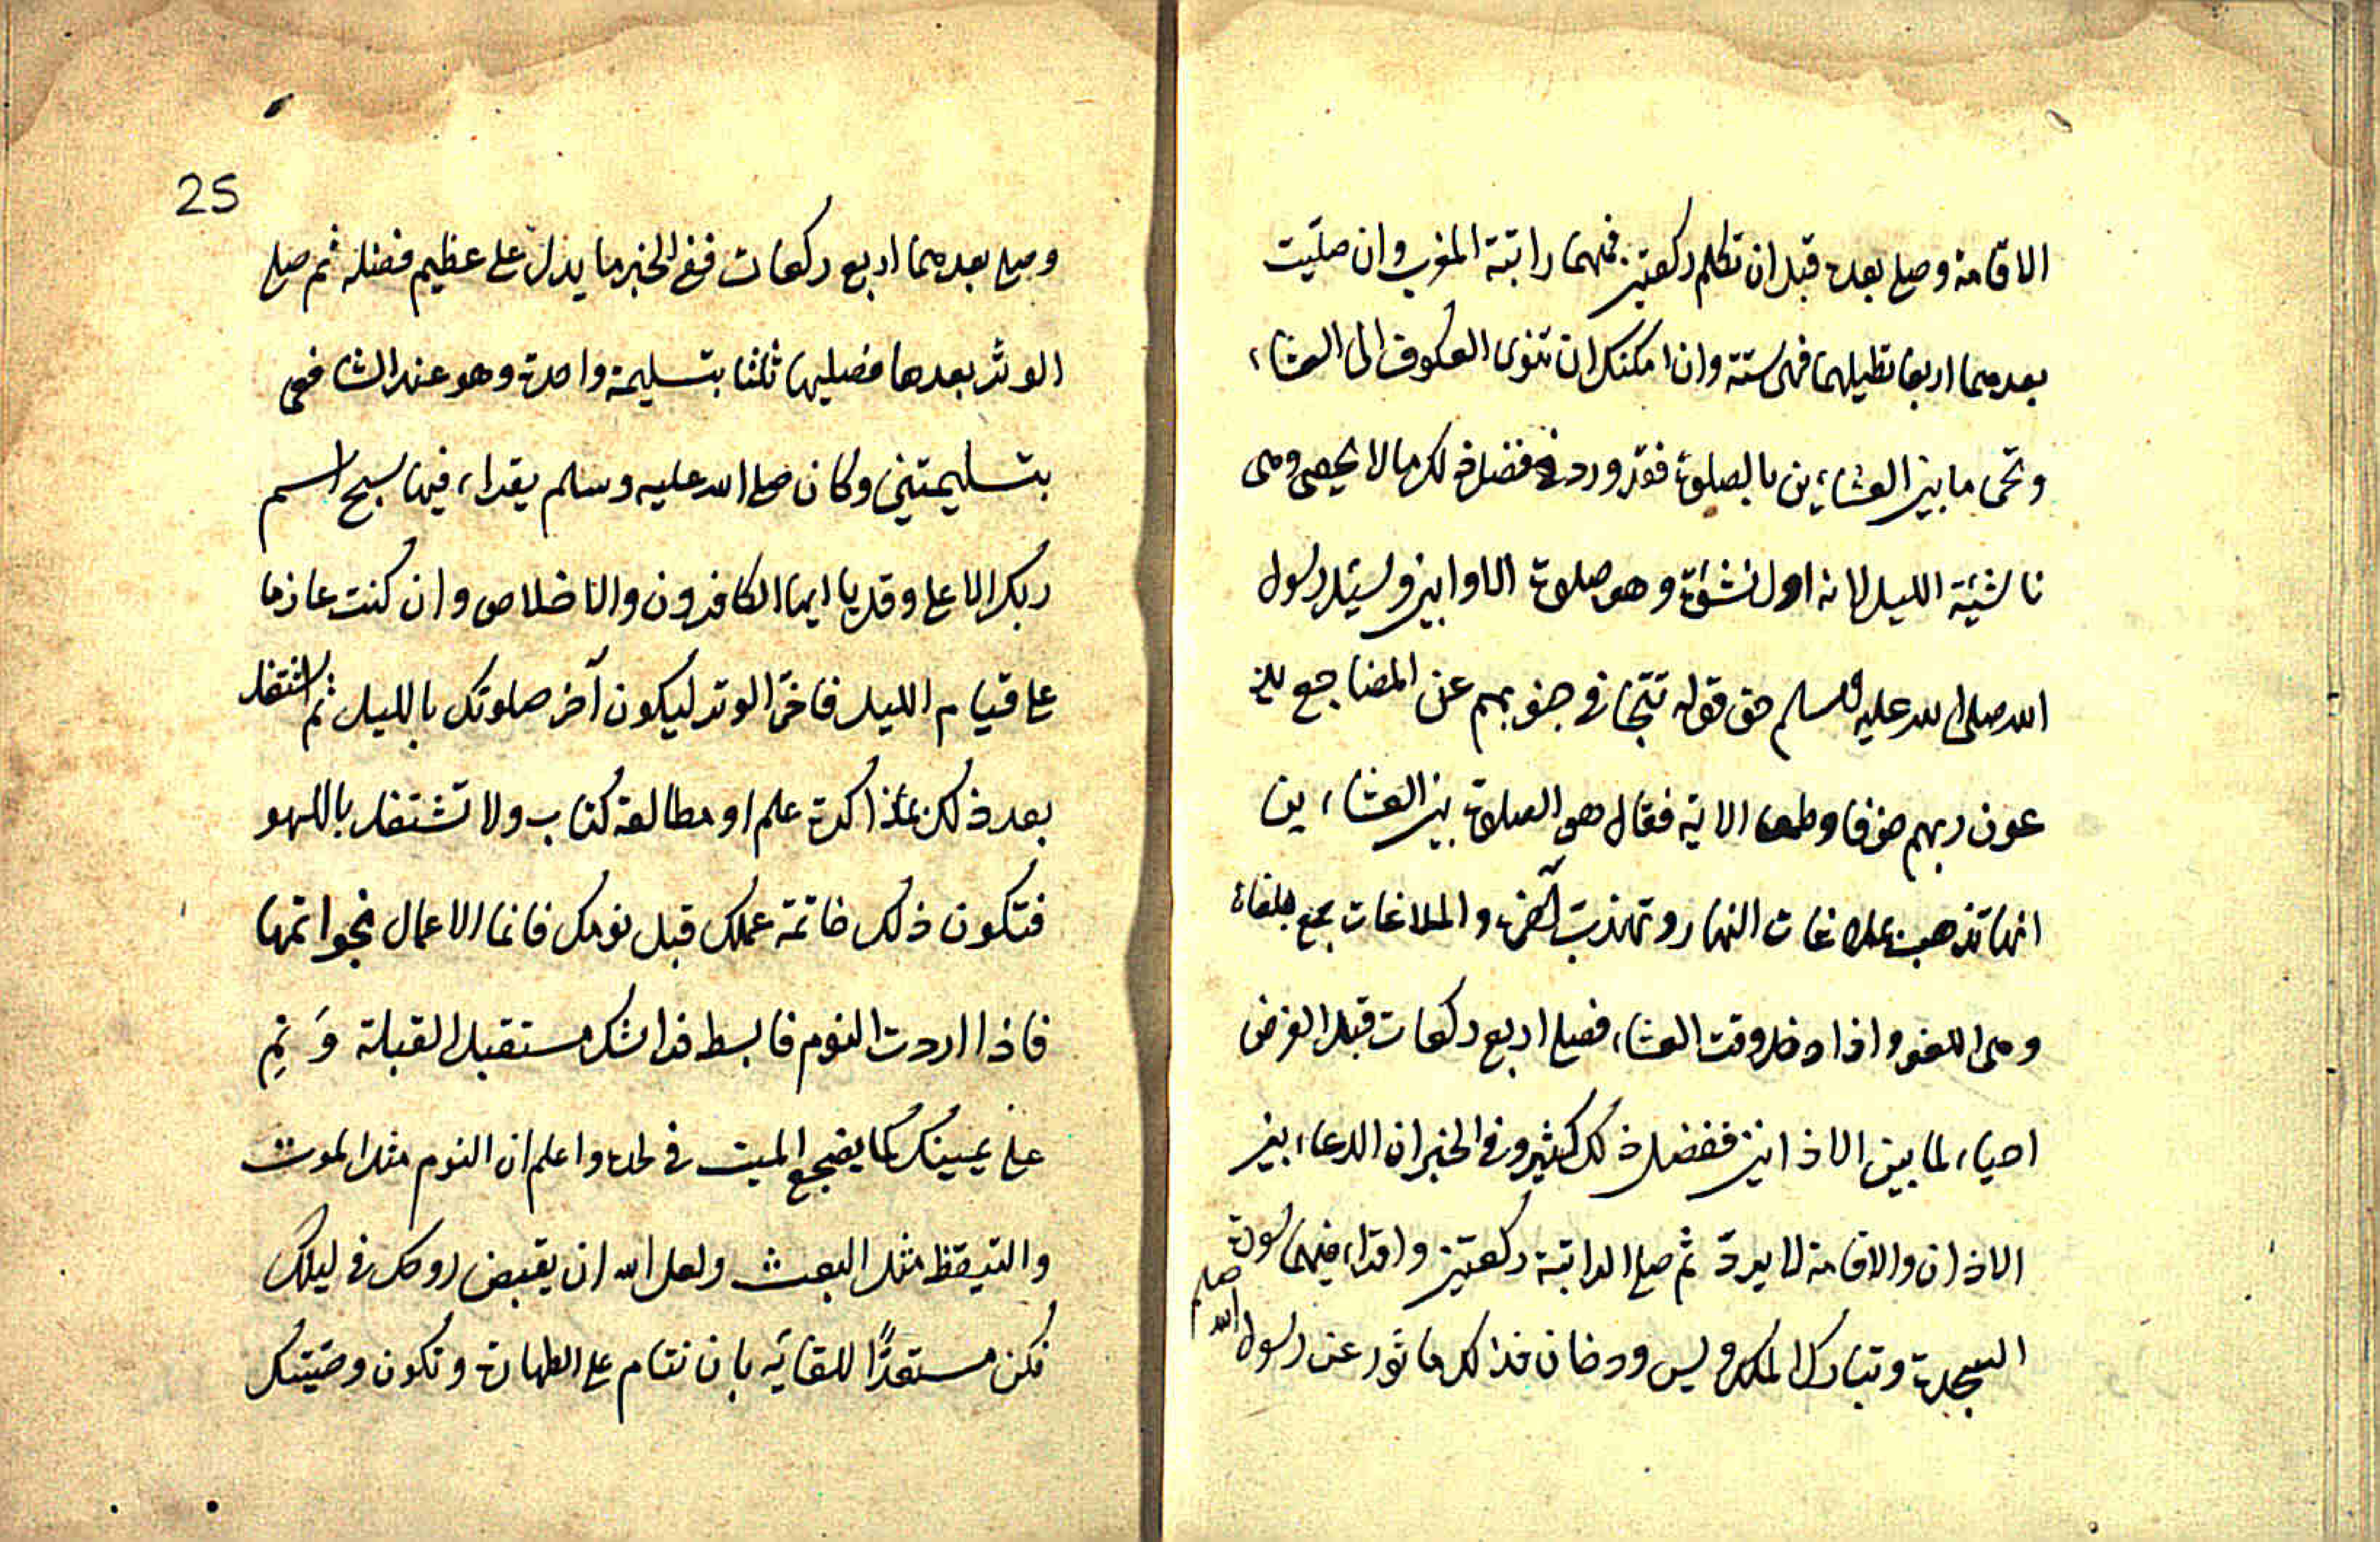 الاقامة وصلى بعده قبل ان تكلم ركعتين فهما راتبة المغرب وان صليت
بعدهما اربعا تطيلهما فهى سنة وان امكنك ان تنوى العكوف الى العشاء
وتحى ما بين العشاءين بالصلوة فقد ورد فى فضل ذلك ما لا يحصى وهى
ناشيئة الليل لانه اول نشئة وهو صلوة الاوابين وسيئل رسول
الله صلى الله عليه وسلم عن قوله تتجافى جنوبهم عن المضاجع يد
عون ربهم خوفا وطمعا الاية فقال هى الصلوة بين العشاءين
انها تذهب بملاغات النهار وتهذب آخره والملاغات جمع ملغاة
وهى اللغو واذا دخل وقت العشاء فصلى اربع ركعات قبل الفرض
احياء لما بين الاذانين ففضل ذلك كثير وفى الخبر ان الدعاء بين
الاذان والاقامة لا يرد ثم صلى الراتبة ركعتين واقراء فيهما سورة
السجدة وتبارك الملك ويس ودخان فذلك ماثور عن رسول الله صلعم
25
وصلى بعدهما اربع ركعات ففى الخبر ما يدل على عظيم فضله ثم صلى
الوتر بعدها فصليها ثلثا بتسليمة واحدة وهو عند الشافعى
بتسليمتين وكان صلى الله عليه وسلم يقراء فيها سبح اسم
ربك الاعلى وقل يا ايها الكافرون والاخلاص وان كنت عازما
على قيام الليل فاخر الوتر ليكون آخر صلوتك بالليل ثم اشتغل
بعد ذلك بمذاكرة علم او مطالعة كتاب ولا تشتغل باللهو
فتكون ذلك خاتمة عملك قبل نومك فانما الاعمال بخواتمها
فاذا اردت النوم فابسط فراشك مستقبل القبلة وَنَمِ
على يمينك كما يضجع الميت فى لحده واعلم ان النوم مثل الموت
والتيقظ مثل البعث ولعل الله ان يقبض روحك فى ليلك
فكن مستعدًّا للقائه بان تنام على الطهارة وتكون وصيتك